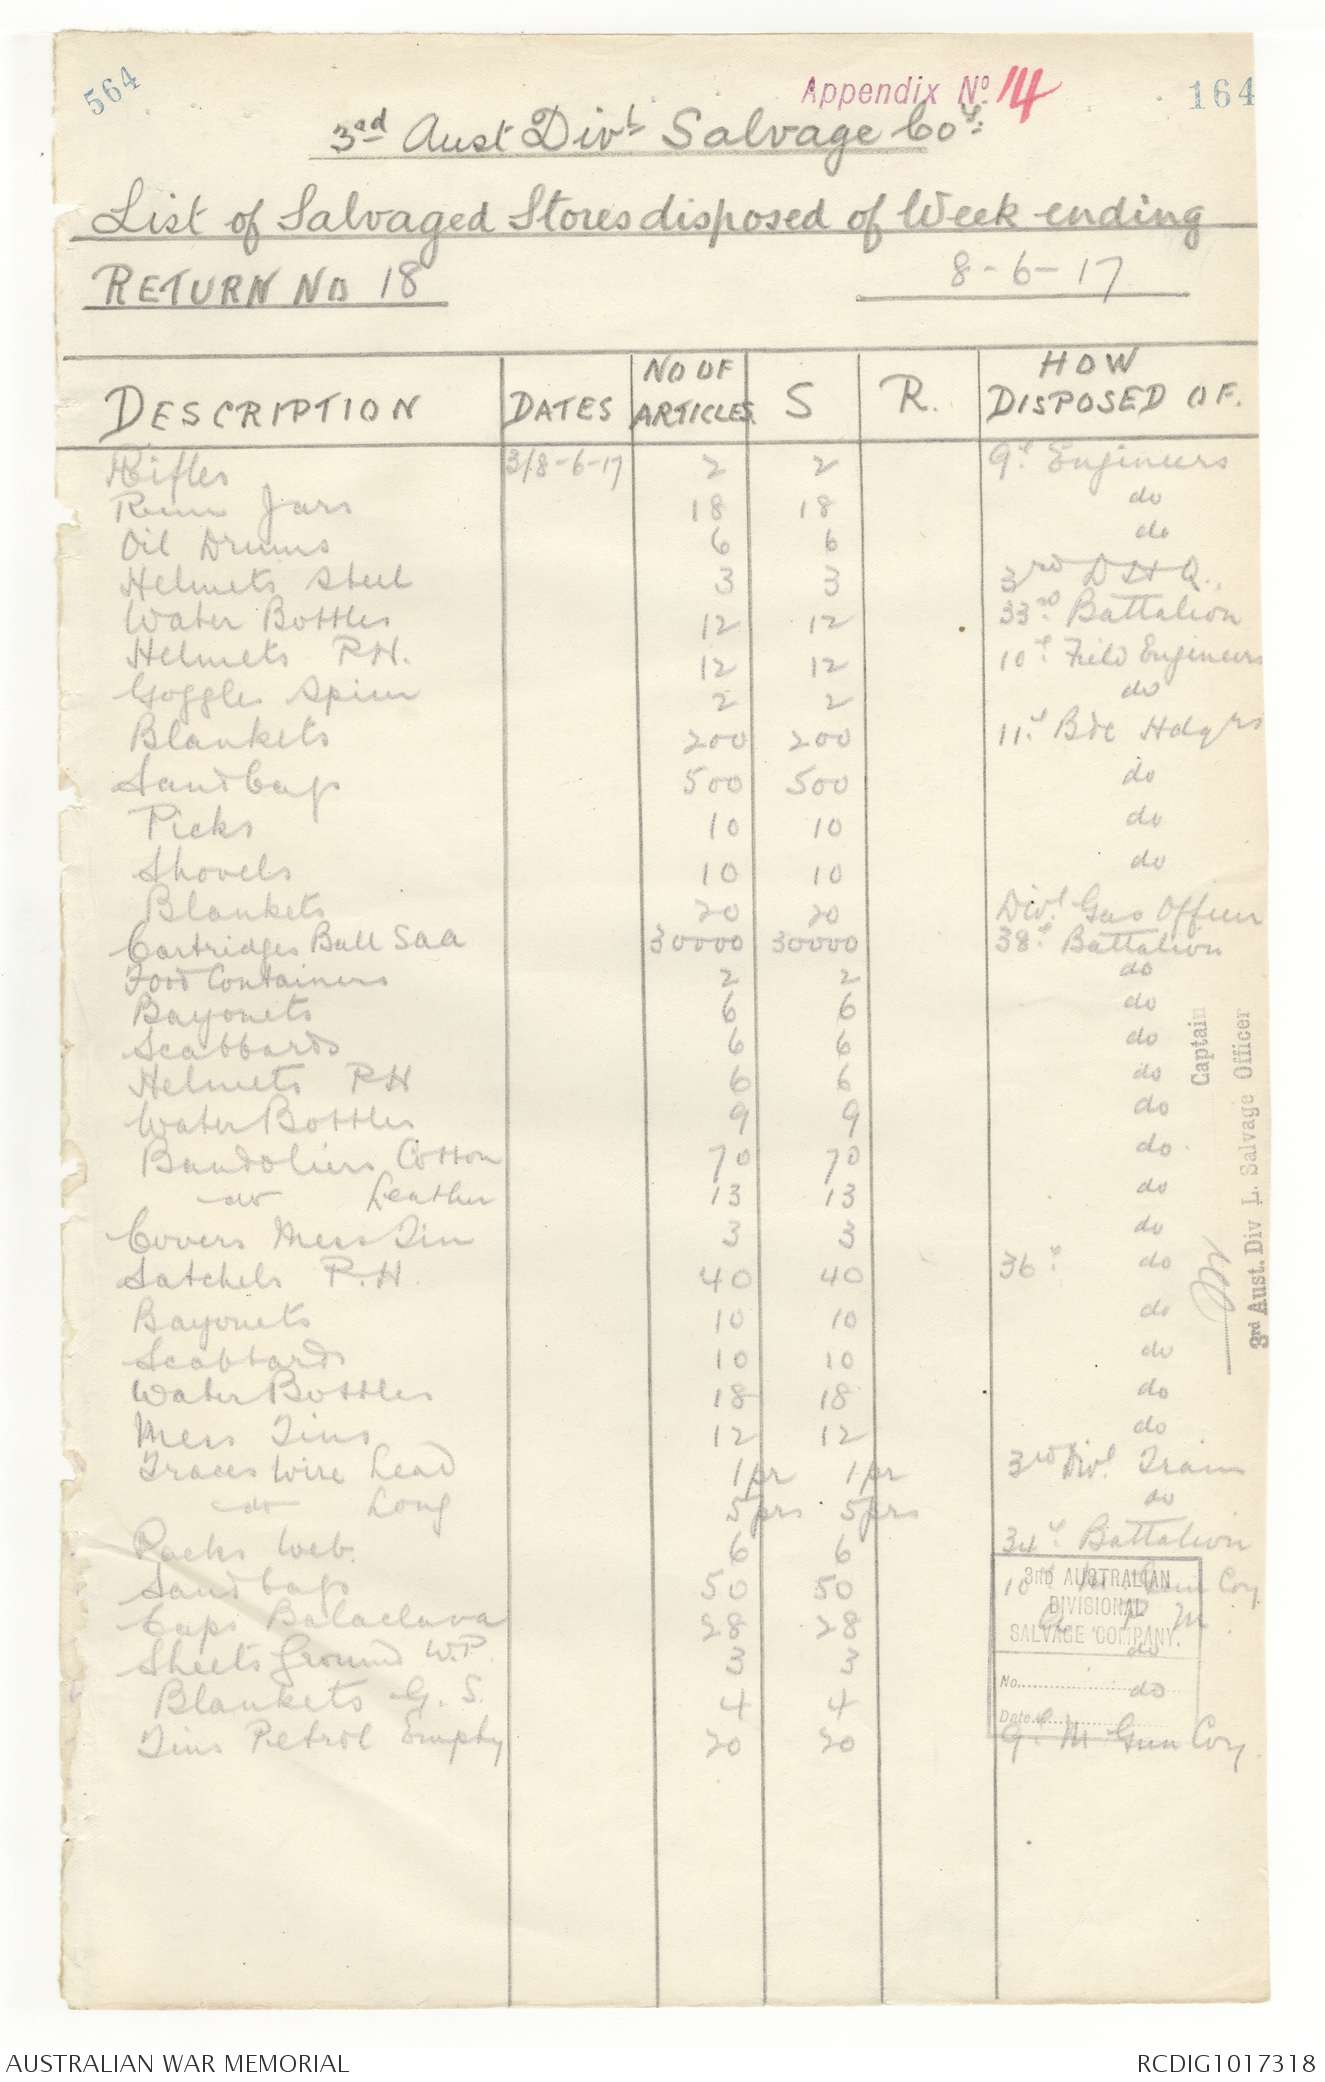 564
Appendix No. 14
164
3rd Aust Divl Salvage Coy.
List of Salvaged Stores disposed of Week ending
RETURN NO 18
8-6-17
DESCRIPTION DATES NO OF ARTICLES S R. HOW DISPOSED OF.
Rifles 3/8-6-17 2 2 9th Engineers
Rum Jars 18 18 do
Oil Drums 6 6 do
Helmets Steel 3 3 3rd D H Q.
Water Bottles 12 12 33rd Battalion
Helmets P.H. 12 12 10th Field Engineers
Goggles Spicer 2 2 do
Blankets 200 200 11th Bde Hdqrs
Sandbags 500 500 do
Picks 10 10 do
Shovels 10 10 do
Blankets 20 20 Divl. Gas Officer
Cartridges Ball SAA 30000 30000 38th Battalion
Food Containers 2 2 do
Bayonets 6 6 do
Scabbards 6 6 do
Helmets PH 6 6 do
Water Bottles 9 9 do
Bandoliers Cotton 70 70 do
do Leather 13 13 do
Covers Mess Tin 3 3 do
Satchels P.H. 40 40 36th do
Bayonets 10 10 do
Scabbards 10 10 do
Water Bottles 18 18 do
Mess Tins 12 12 do
Traces Wire Lead 1pr 1pr 3rd Divl. Train
do Long 5prs 5prs do
Packs Web. 6 6 34th Battalion
Sandbags 50 50 10th M. Gun Coy
Caps Balaclava 28 28 A P M
Sheets Ground W.P. 3 3 do
Blankets G.S. 4 4 do
Tins Petrol Empty 20 20 9th M Gun Coy.
3RD AUSTRALIAN
DIVISIONAL
SALVAGE COMPANY.
No.
Date
Captain
3rd Aust. Div L. Salvage Officer
AUSTRALIAN WAR MEMORIAL
RCDIG1017318